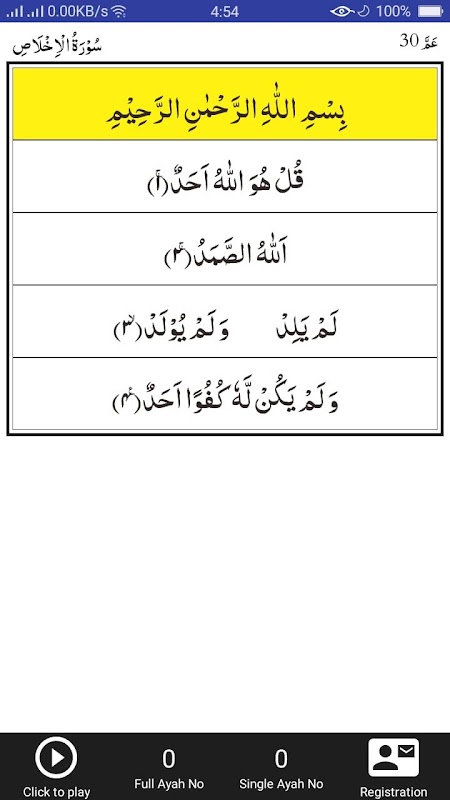 0.00KB/s 4:54 100%
سُوْرَةُ الْاِخْلَاصِ عَمَّ 30
بِسْمِ اللّٰهِ الرَّحْمٰنِ الرَّحِيْمِ
قُلْ هُوَ اللّٰهُ اَحَدٌ (۱)
اَللّٰهُ الصَّمَدُ (۲)
لَمْ يَلِدْ وَلَمْ يُوْلَدْ (۳)
وَلَمْ يَكُنْ لَّهٗ كُفُوًا اَحَدٌ (۴)
0 0
Click to play Full Ayah No Single Ayah No Registration